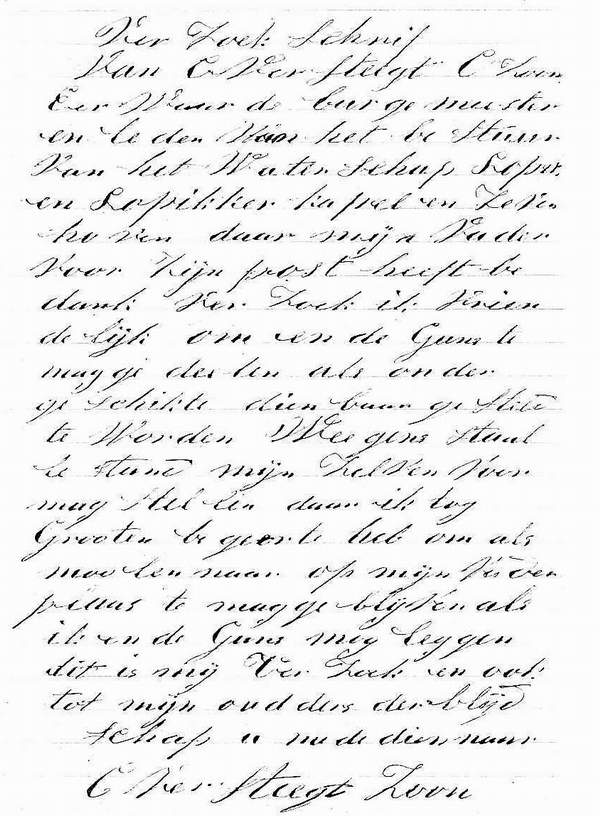 Ver Zoek Schrif
Van C Ver Steegt C Zoon
Eer Waar de bur ge meester
en le den Van het be Stuur
Van het Water Schap Lopik
en Lopikker kapel en Zeven
ho ven daar mijn Vader
Voor Zijn post heeft be
dank Ver Zoek ik Vrien
de lijk om en de Guns te
mag ge dee len als on der
ge Schikte dien baar ge Steld
te Worden Weegens Staat
le stand mijn Zelven Voor
mag Stel len daar ik tog
Grooten be geerte heb om als
moolennaar op mijn Vaders
plaas te mag ge blijven als
ik en de Guns mog leggen
dit is mij Ver Zoek en ook
tot mijn oud ders der blijd
schap u nu de dienaar
C Ver Steegt Zoon